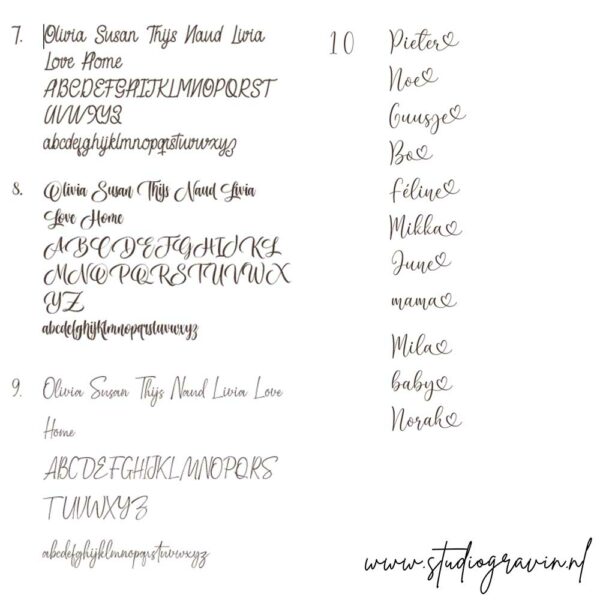 7. Olivia Susan Thijs Naud Livia
Love Home
ABCDEFGHIJKLMNOPQRST
UVWXYZ
abcdefghijklmnopqrstuvwxyz
8. Olivia Susan Thijs Naud Livia
Love Home
ABCDEFGHIJKL
MNOPQRSTUVWX
YZ
abcdefghijklmnopqrstuvwxyz
9. Olivia Susan Thijs Naud Livia Love
Home
ABCDEFGHIJKLMNOPQRS
TUVWXYZ
abcdefghijklmnopqrstuvwxyz
10 Pieter♡
Noe♡
Guusje♡
Bo♡
Féline♡
Mikka♡
June♡
mama♡
Mila♡
baby♡
Norah♡
www.studiogravin.nl